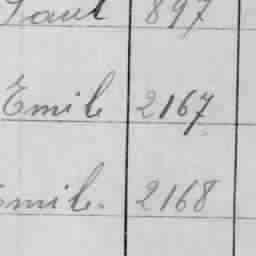 Paul 897
Emile 2167
Emile. 2168